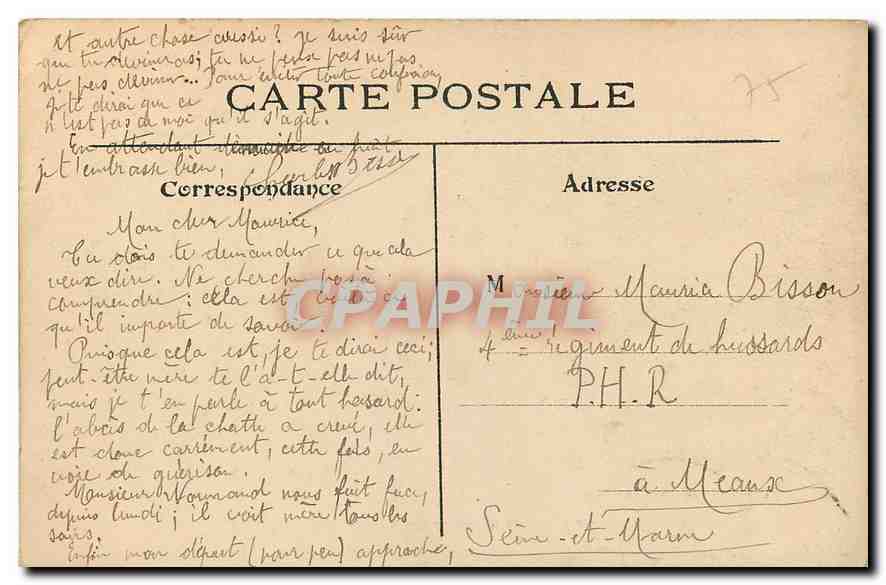 et autre chose aussi? Je suis sûr
que tu devineras; tu ne peux pas ne pas
ne pas deviner... Pour éviter toute confusion,
je te dirai que ce
n'est pas de moi qu'il s'agit.
En attendant dimanche en huit
je t'embrasse bien,
75
CARTE POSTALE
Correspondance
Mon cher Maurice,
Tu dois te demander ce que cela
veux dire. Ne cherche pas à
comprendre: cela est, voilà ce
qu'il importe de savoir.
Puisque cela est, je te dirai ceci;
peut-être mère te l'a-t-elle dit,
mais je t'en parle à tout hasard:
l'abcès de la chatte a crevé, elle
est donc carrément, cette fois, en
voie de guérison.
Monsieur Normand nous fait face,
depuis lundi; il voit mère tous les
soirs.
Enfin mon départ (pour peu) approche,
Adresse
Monsieur Maurice Bisson
4ème régiment de hussards
P.H.R
à Meaux
Seine-et-Marne
CPAPHIL